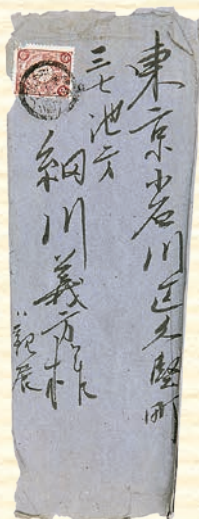 東京小石川区久堅町
三七池方
細川義方様
親展